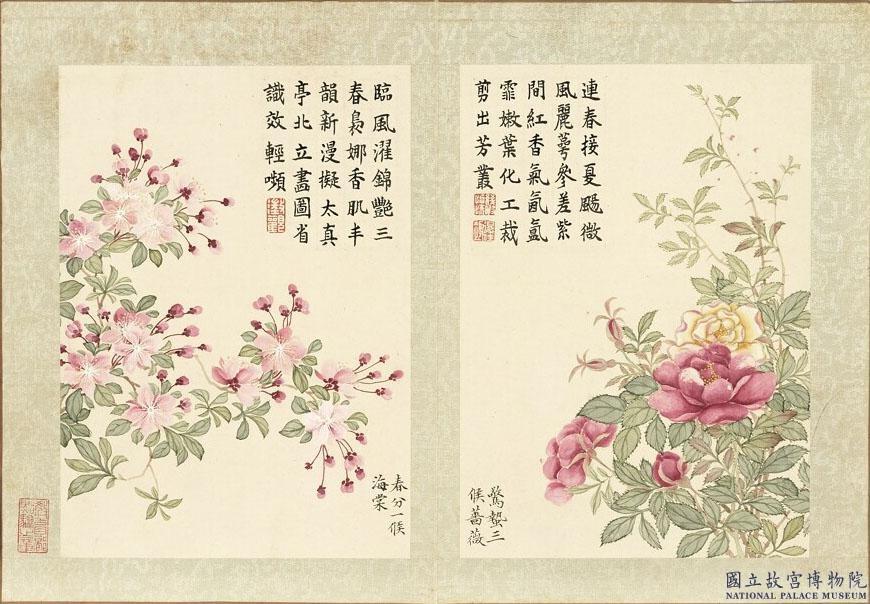 連春接夏颺微
風麗萼參差紫
間紅香氣氤氳
霏嫩葉化工裁
剪出芳叢
驚蟄三
候薔薇
臨風濯錦豔三
春裊娜香肌丰
韻新漫擬太真
亭北立畫圖省
識效輕嚬
春分一候
海棠
國立故宮博物院
NATIONAL PALACE MUSEUM